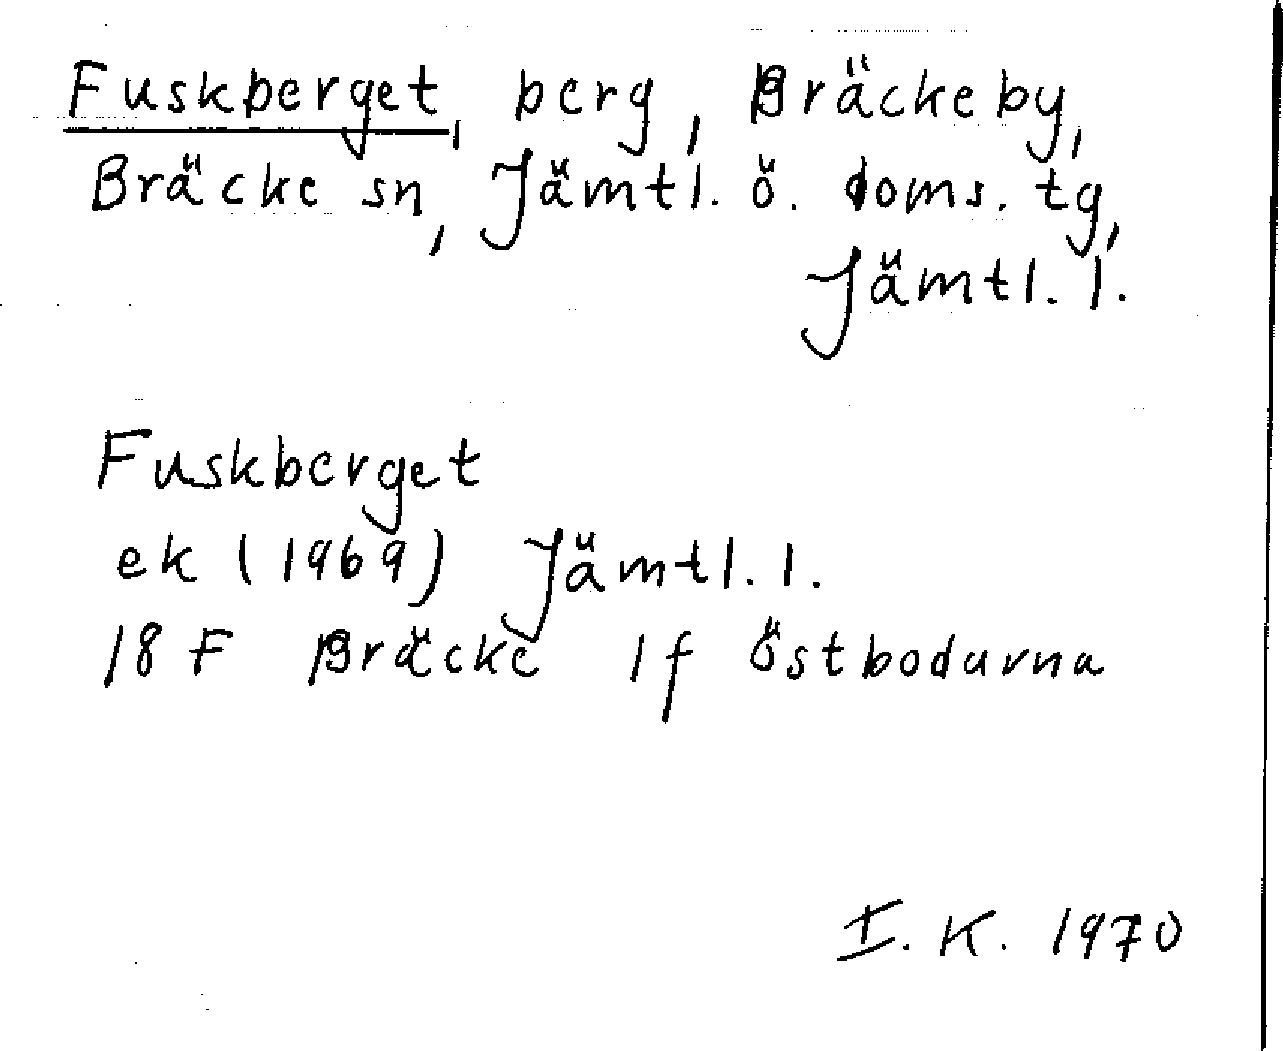 Fuskberget, berg, Bräcke by,
Bräcke sn, Jämtl. ö. doms. tg,
Jämtl. l.
Fuskberget
ek (1969) Jämtl. l.
18 F Bräcke 1 f Östbodarna
I. K. 1970